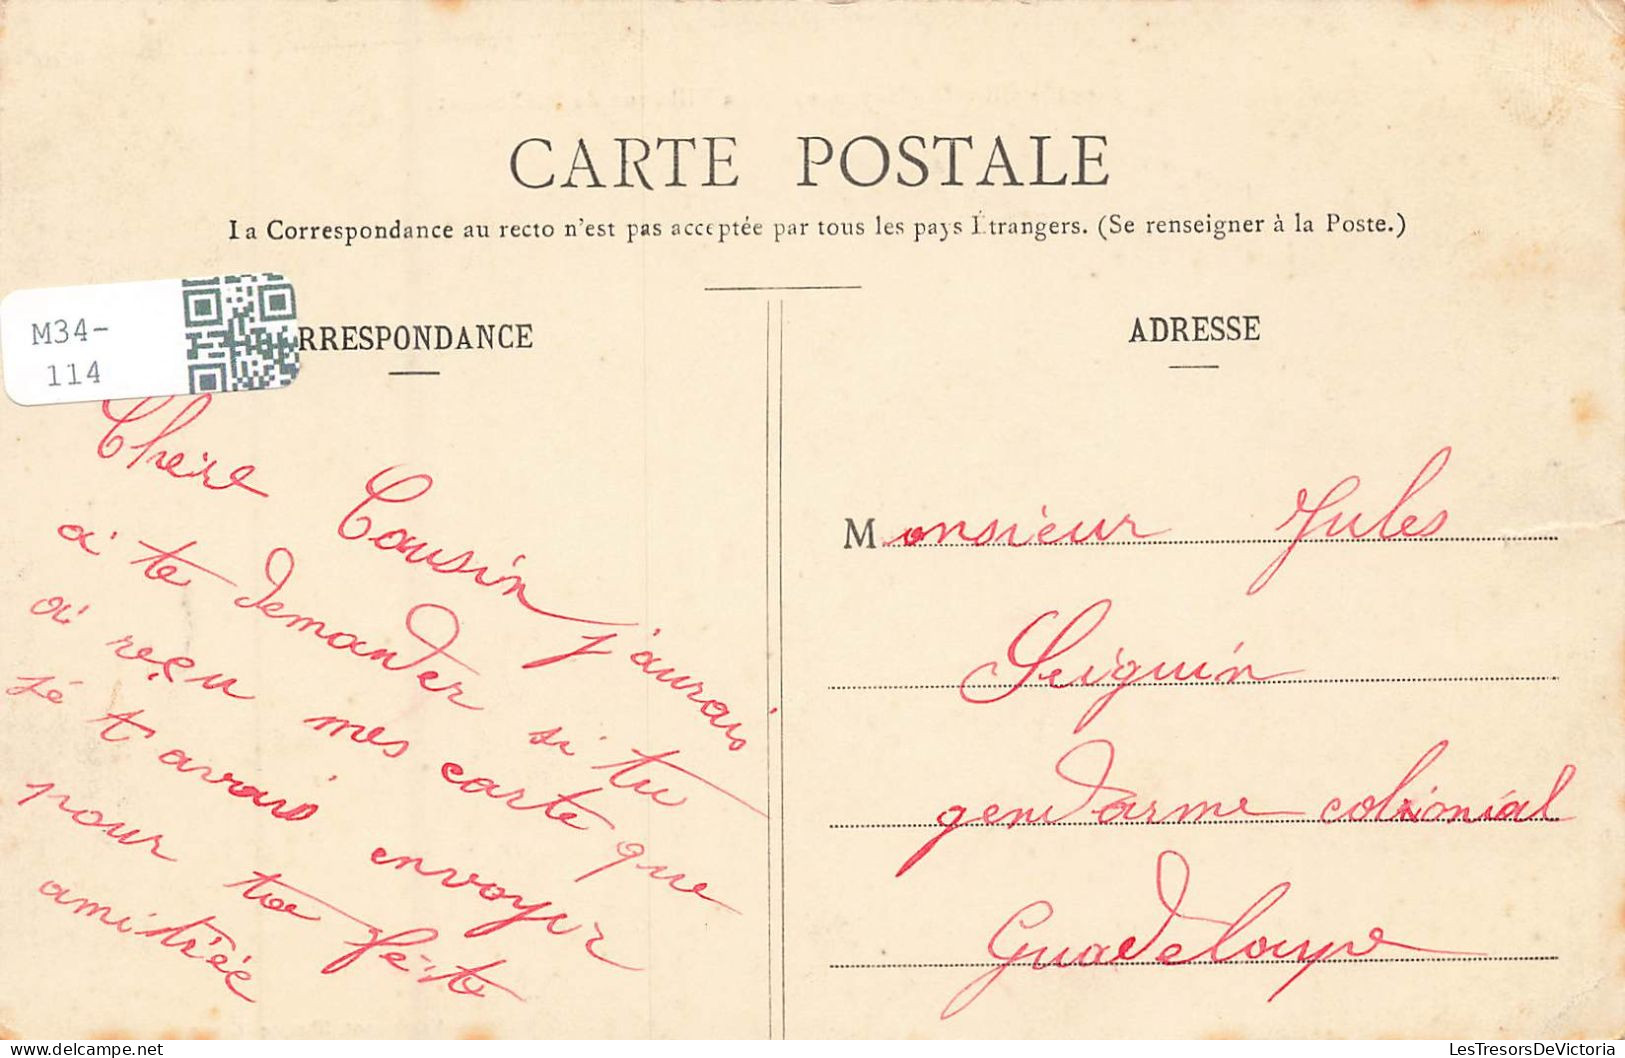 CARTE POSTALE
La Correspondance au recto n'est pas acceptée par tous les pays Étrangers. (Se renseigner à la Poste.)
M34-
114
RRESPONDANCE
ADRESSE
Cheire Cousin j'aurais
a te demander si tu
a reçu mes carte que
je t'avais envoyer
pour ta feite
amitiée
Monsieur Jules
Seiguin
gendarme colonial
Guadeloupe
LesTresorsDeVictoria